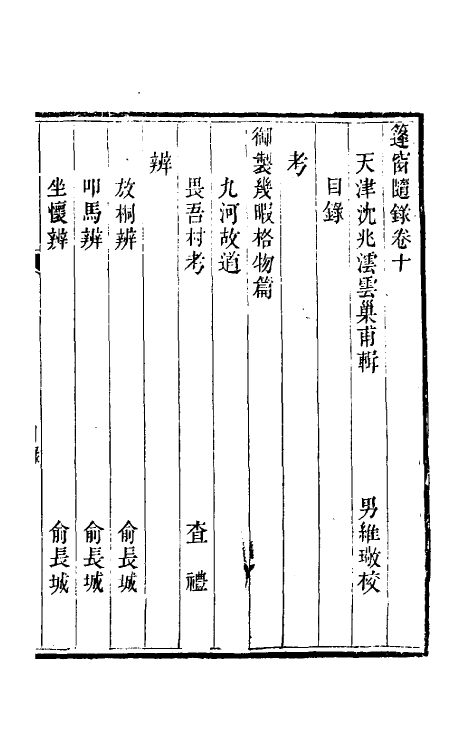 篷窗隨錄卷十
天津沈兆澐雲巢甫輯 男維璥校
目錄
考
御製幾暇格物篇
九河故道
畏吾村考 查禮
辨
放桐辨 俞長城
叩馬辨 俞長城
坐懷辨 俞長城